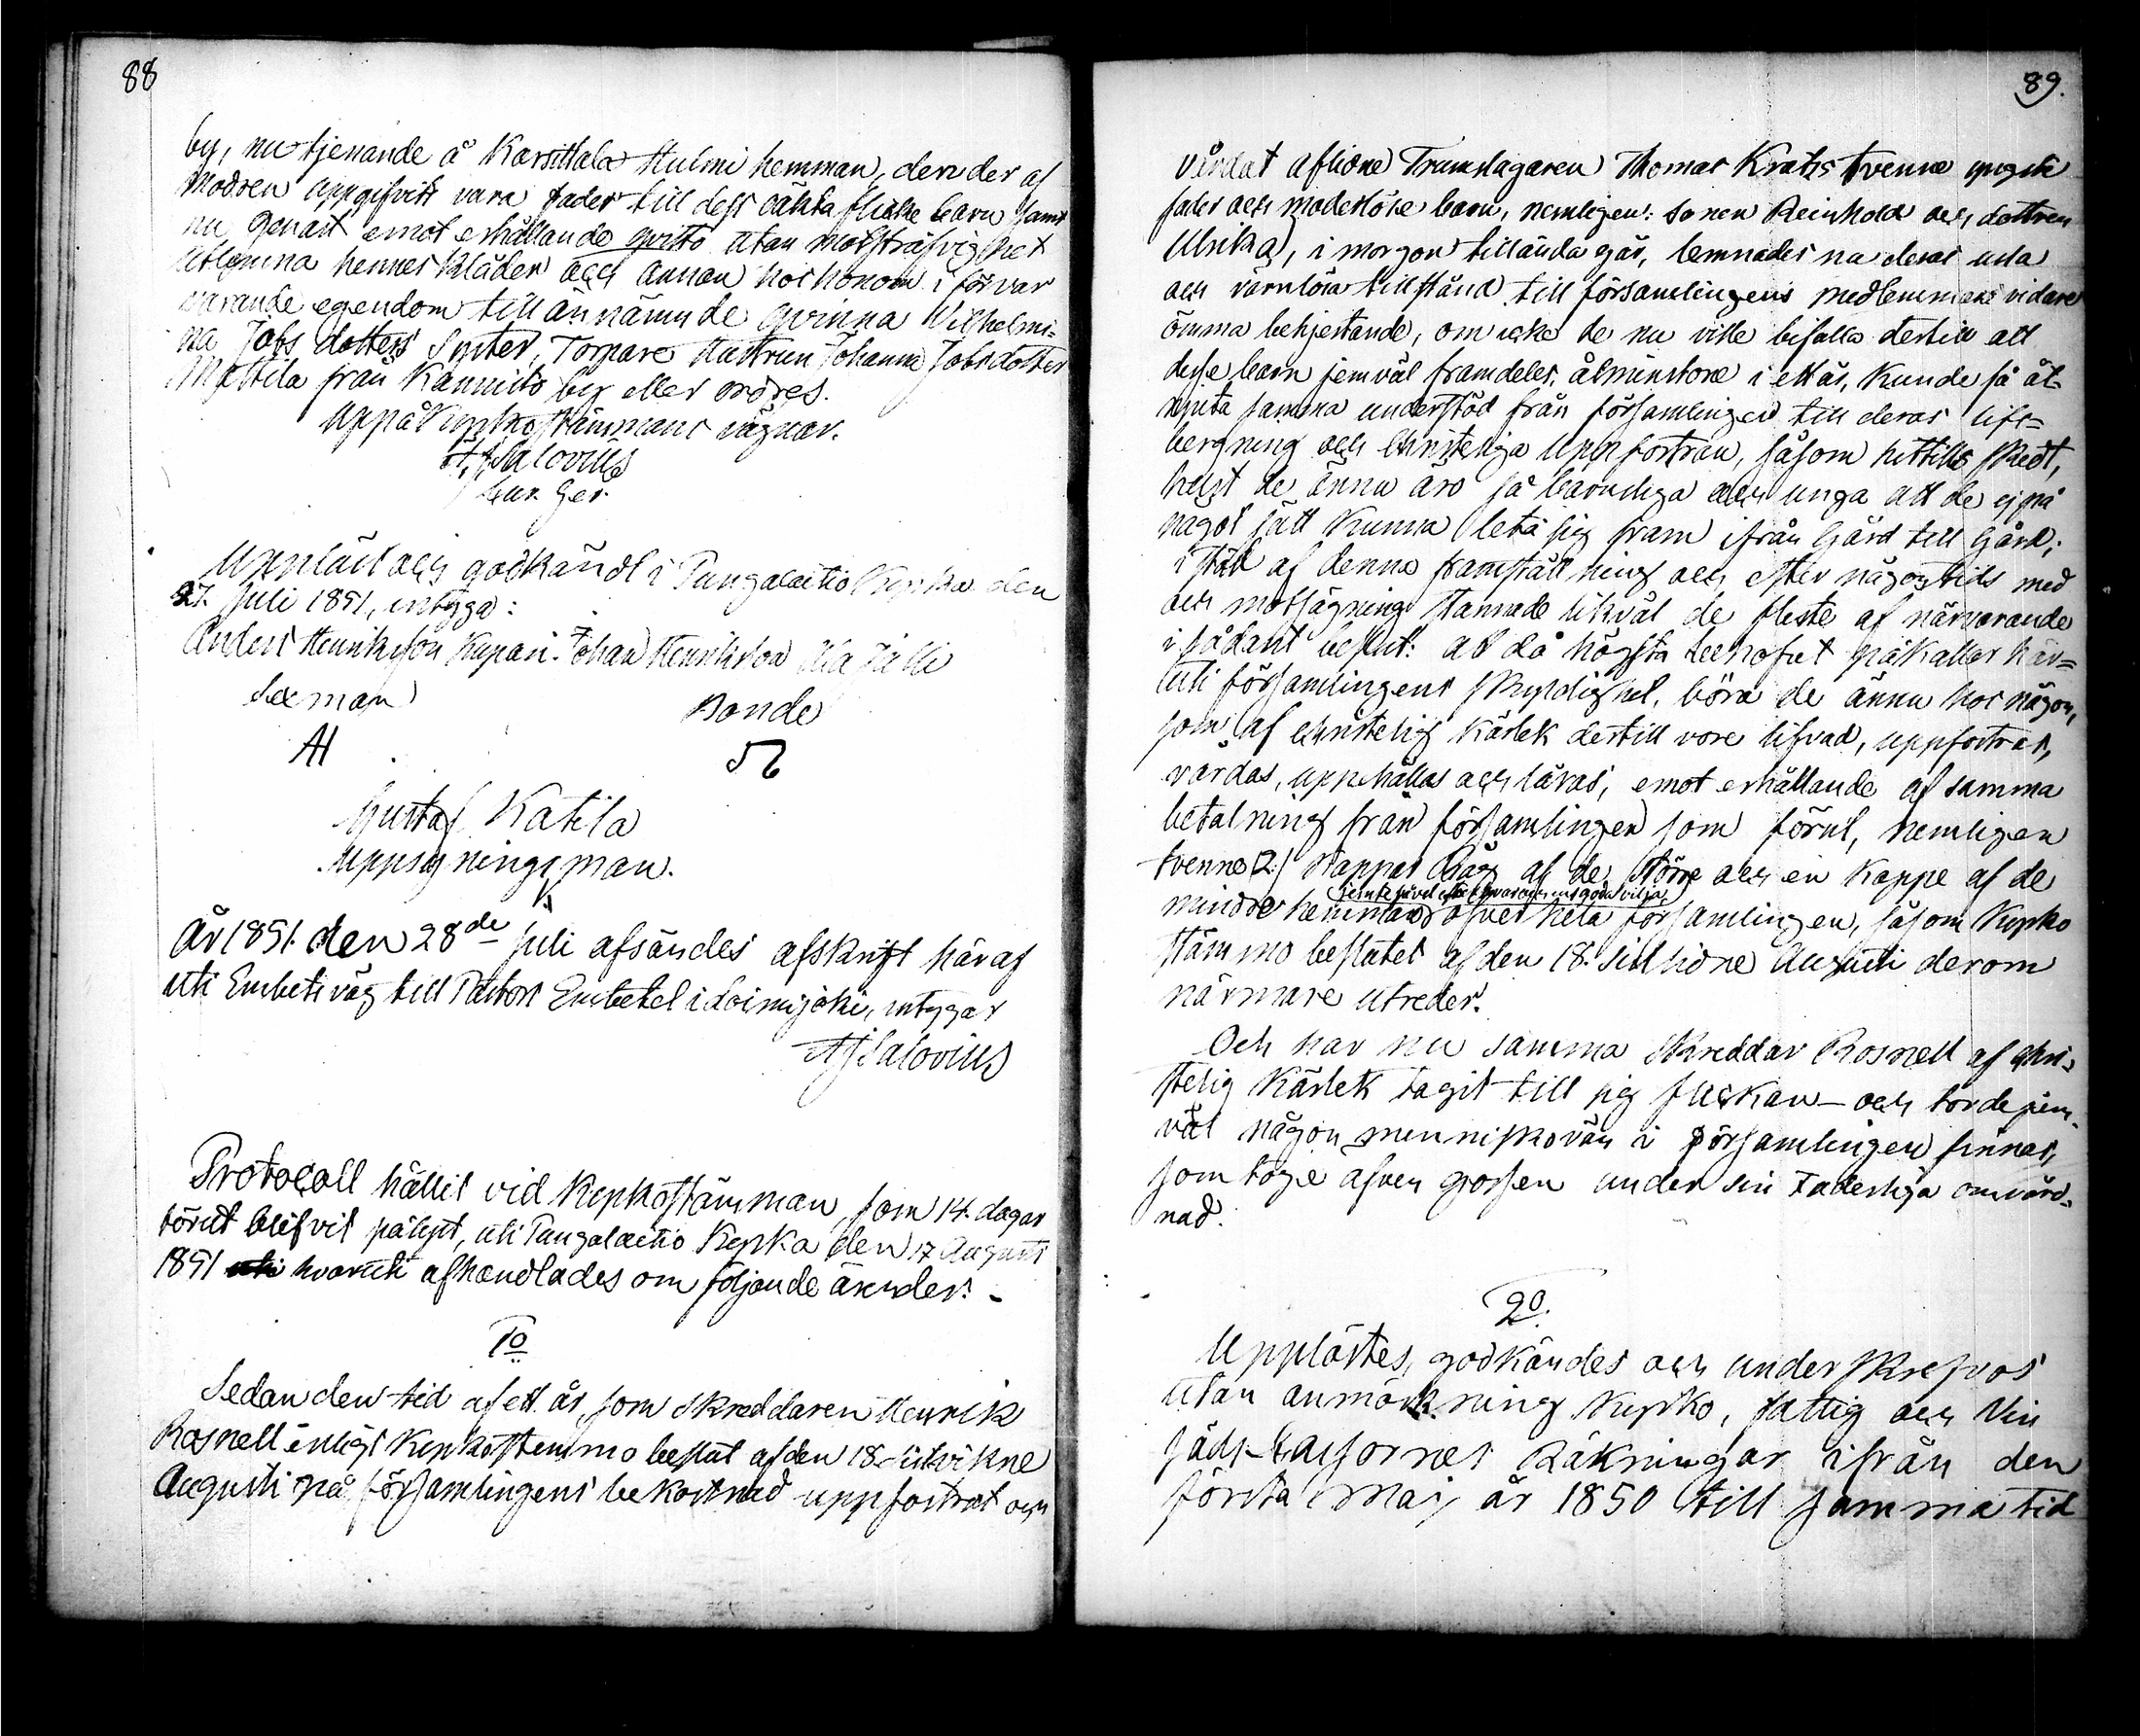 88
by, nu tjenande å Karsattala Hulmi hemman, den der af
modren uppgifvits vara fader till dess oäkta flicke barn samt
nu genast emot erhållande qvitto utan motsträfvighet
utlemna hennes kläder och annan hos honom i förvar
varande egendom till ännämnde qvinna Wilhelmi-
na Jobs dotters Syster, Torpare Hustrun Johanna Jobsdotter
Mattila från Kannisto by eller
Uppå Kyrkostämmans vägnar.
A. J. Salovius
Uppläst och godkändt i Pungalaitio Kyrka den
27. Juli 1851, intyga:
Anders Henriksson Kupari. Johan Henriksson Ala Jälli
Sexman Bonde
AH
Gustaf Katila
Uppsyningsman.
År 1851. den 28de Juli afsändes afskrift häraf
uti Embets väg till Pastors Embetet i Loimijoki, intygar
A J Salovius
Protocoll hållit vid Kyrkostämman, som 14. dagar
förut blifvit pålyst, uti Pungalaitio Kyrka den 17 Augusti
1851 uti hvaruti afhandlades om följande ärender. -
1o
Sedan den tid af ett år som Skreddaren Henrik
Rosnell enligt Kyrkostemmo beslut af den 18. sistvikne
Augusti på församlingens bekostnad uppfostrat och
89.
vårdat aflidne Trumslagaren Thomas Kratz tvenne
fader och moderlöse barn, nemligen: sonen Reinhold och dottren
Ulrika, i morgon tilländagår, lemnades nu deras usla
och värnlösa tillstånd till församlingens medlemmars vidare
ömma behjertande, om icke de nu ville bifalla dertill att
desse barn jemväl framdeles, åtminstone i ett år, kunde få åt-
njuta samma understöd från församlingen till deras lifs-
bergning och Christeliga uppfostran, såsom hittills skedt,
helst de ännu äro så barnsliga och unga att de ej på
något sätt kunna leta sig fram ifrån Gård till Gård;
i följd af denna framställning och efter någon tids med
och motsägning stannade likväl de fleste af närvarande
i sådant beslut: at då högsta behofvet påkallar här-
uti församlingens skyldighet, böra de ännu hos någon,
som af christelig kärlek dertill vore lifvad, uppfostras,
vårdas, uppehållas och läras, emot erhållande af samma
betalning från församlingen som förut, nemligen
tvenne (2.) Kappar Råg af de större och en Kappe af de
jemte hvars och ens goda vilja
mindre hemman öfver hela församlingen, såsom Kyrko
stämmo beslutet af den 18. sistlidne Augusti derom
närmare utreder.
Och har nu samma Skreddar Rosnell af chri-
stelig Kärlek tagit till sig flickan - och torde jem-
väl någon menniskovän i församlingen finnas,
som toge äfven gossen under sin Faderliga omvård-
nad.
2o.
Upplästes, godkändes och underskrefvos
utan anmärkning Kyrko, fattig och Vin
säds-Cassornes Räkningar ifrån den
första Maj år 1850 till samma tid